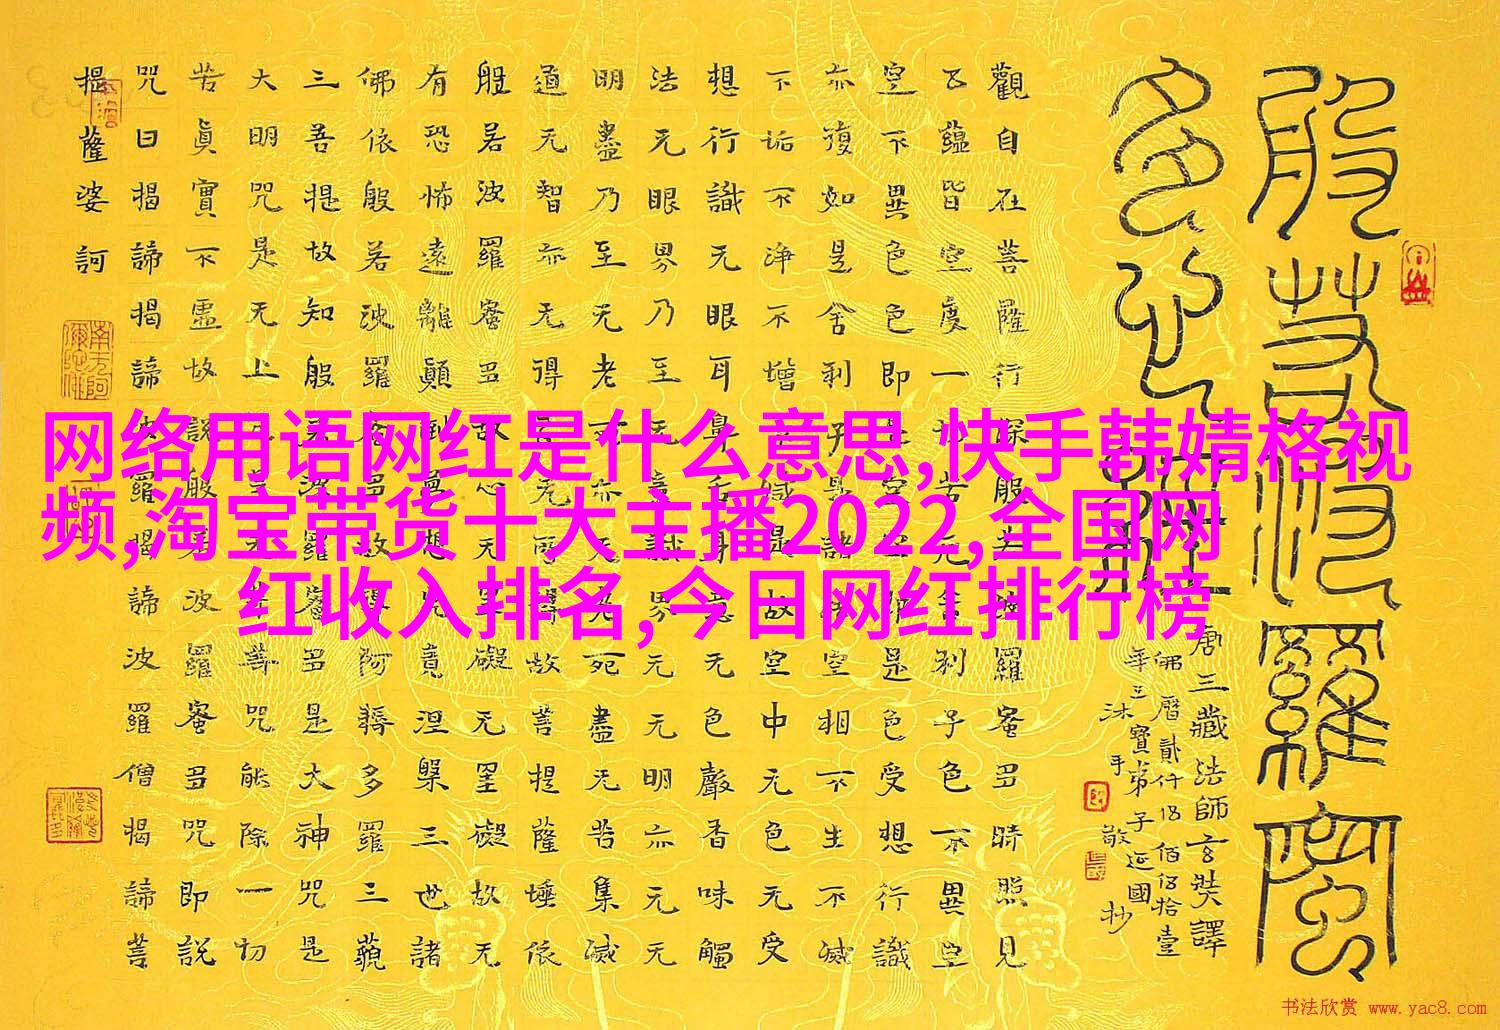 般若波羅蜜
多心經
唐三藏法師玄奘譯
觀自在菩薩行深般若波羅蜜多時照見
五蘊皆空度一切苦厄舍利子色不異空
空不異色色即是空空即是色受想行識
亦復如是舍利子是諸法空相不生不滅
不垢不淨不增不減是故空中无色无受
想行識无眼耳鼻舌身意无色聲香味觸
法无眼界乃至无意識界无无明亦无无
明盡乃至无老死亦无老死盡无苦集滅
道无智亦无得以无所得故菩提薩埵依
般若波羅蜜多故心无罣礙无罣礙故无
有恐怖遠離顛倒夢想究竟涅槃三世諸
佛依般若波羅蜜多故得阿耨多羅三藐
三菩提故知般若波羅蜜多是大神咒是
大明咒是无上咒是无等等咒能除一切
苦真實不虛故說般若波羅蜜多咒即說
咒曰揭諦揭諦波羅揭諦波羅僧揭諦菩
提薩婆訶
网络用语网红是什么意思,快手韩婧格视
频,淘宝带货十大主播2022,全国网
红收入排名,今日网红排行榜
书法欣赏 www.yac8.com